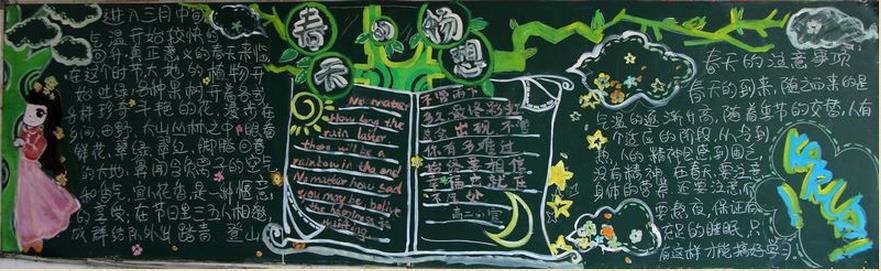 进入三月中旬
气温开始较快的
回升,真正意义的春天来临
在这个时节大地的植物开
始出绿,各种果树开着各式
乡间,田野,大山丛林之中,眼看
鲜花,翠绿,翠红,脚踏回春
的大地,享用含负离子的空气
和香气,宜人花香,是一种惬意
的享受,在节日里三五人相邀
成群结队外出踏青,登山
春天的物想
No matter
How long the
rain laster
there will be a
rainbow in the end
No matter how sad
you may be, belive
the happiness is
waiting
不管雨下
多久最终彩虹
总会出现,不管
你有多难过
始终要相信
幸福就在
不远处
高二
春天的注意事项
春天的到来,随之而来的是
气温的逐渐升高,随着季节的交替,人有
一个适应的阶段,从冷到
热,人的精神总感到困乏,
没有精神,在春天要注意
身体的营养,还要注意不
要熬夜,保证有
充足的睡眠,只
有这样才能搞好学习